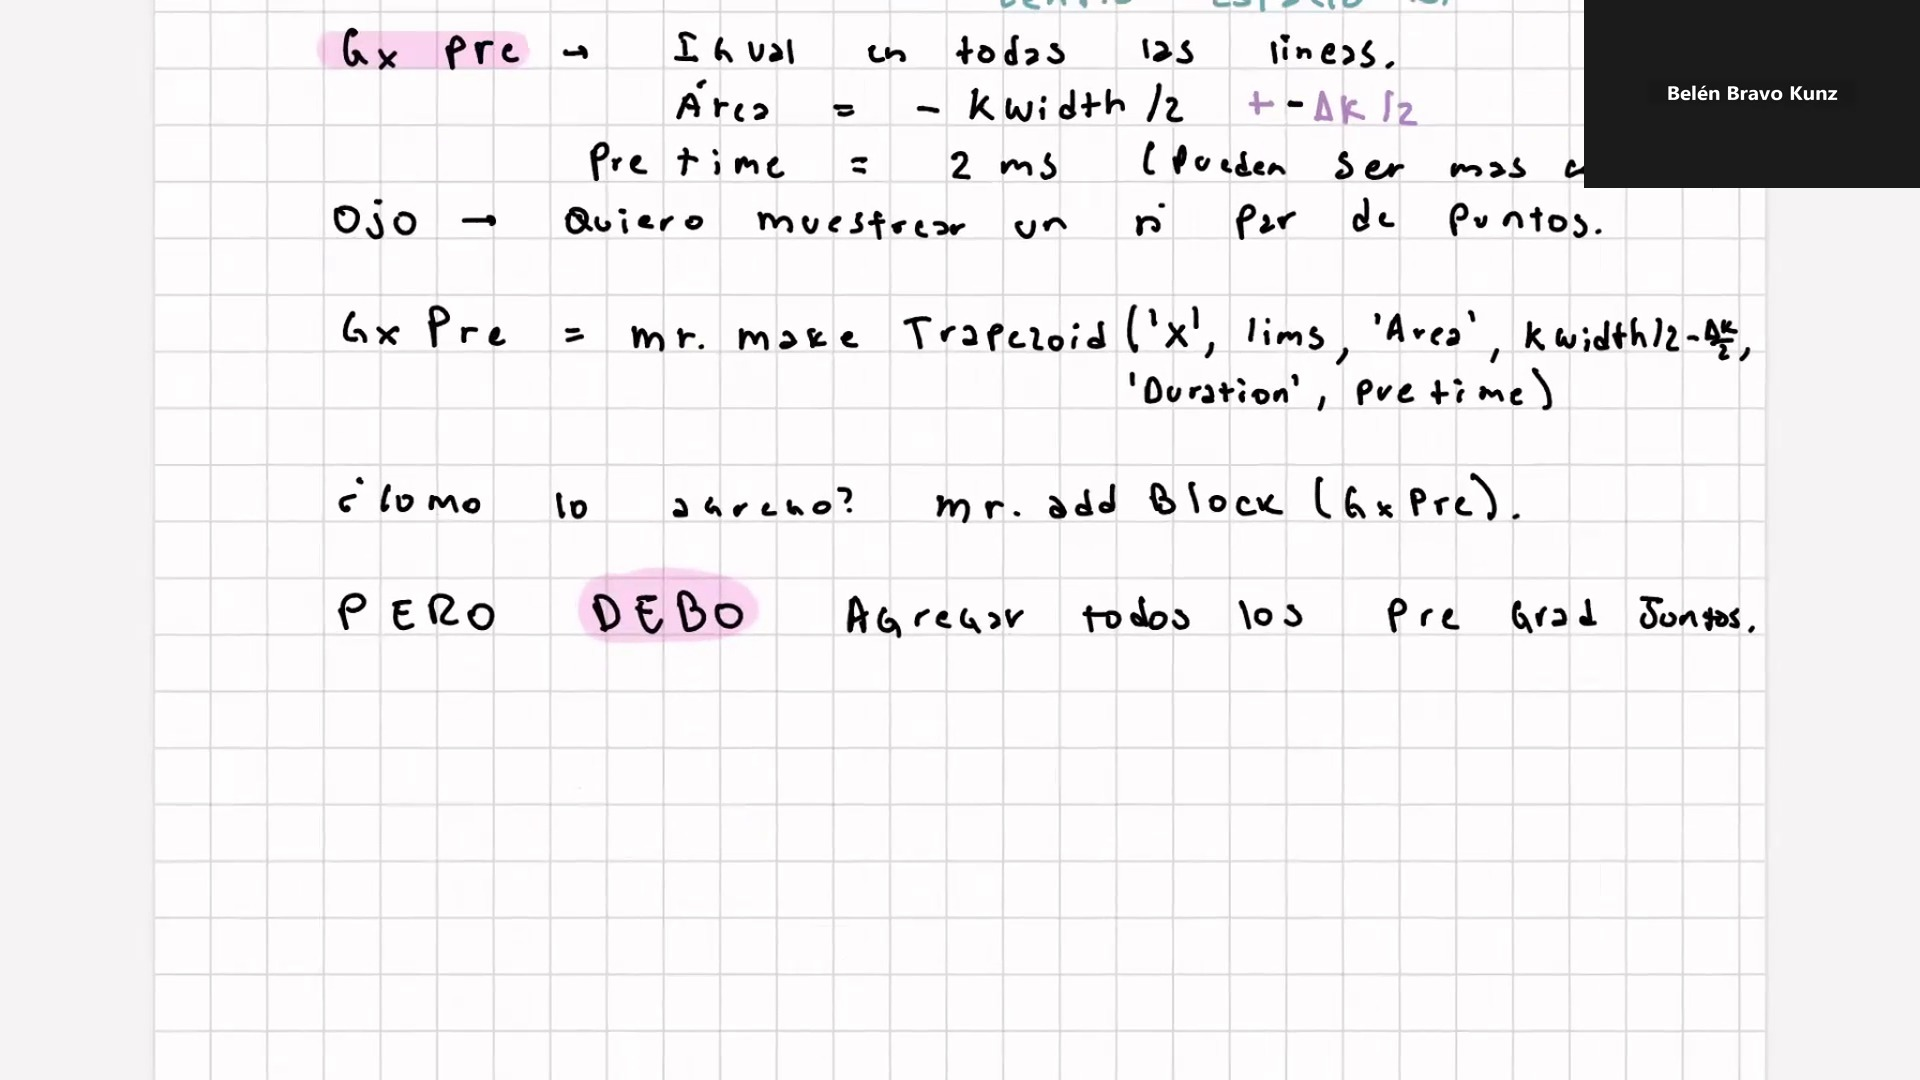 Gx Pre → Igual en todas las lineas.
Belén Bravo Kunz
Área = - Kwidth/2 + - ΔK/2
Pre time = 2 ms (Pueden ser mas
Ojo → Quiero muestrear un n° par de puntos.
Gx Pre = mr. make Trapezoid ('X', lims, 'Area', Kwidth/2 - ΔK/2,
'Duration', pre time)
¿Como lo agrego? mr. add Block (Gx Pre).
PERO DEBO Agregar todos los Pre Grad Juntos.